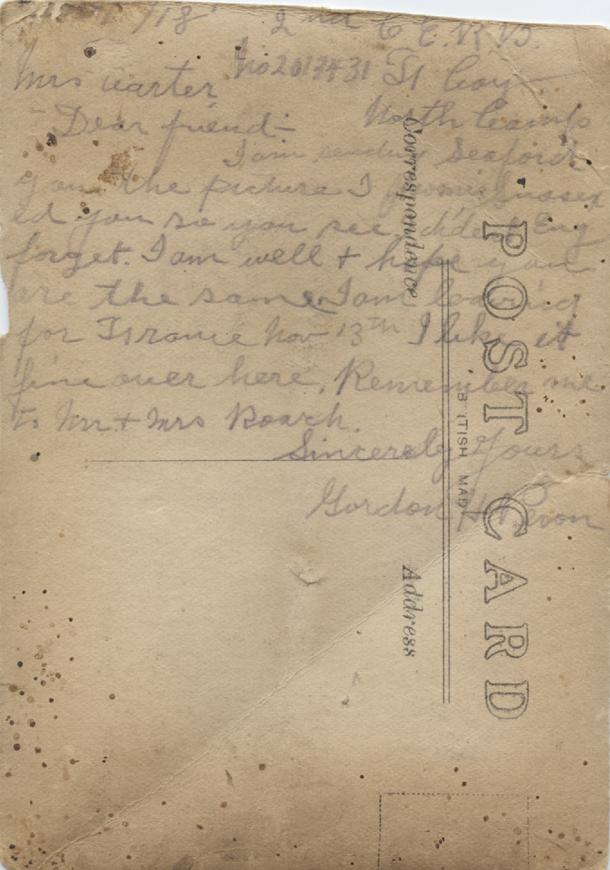 /18 2nd C.E.R.B.
No 2017431 St Coy
Mrs Carter
North Camp
Dear friend:-
Seaford
I am sending
you the picture I promis Sussex
ed you so you see dident Eng
forget. I am well + hope you
are the same. I am leaving
for France Nov 13th I like it
fine over here. Remember me
to Mr + Mrs Roach.
Sincerely Yours
Gordon H
POST CARD
Correspondence
BRITISH MADE
Address